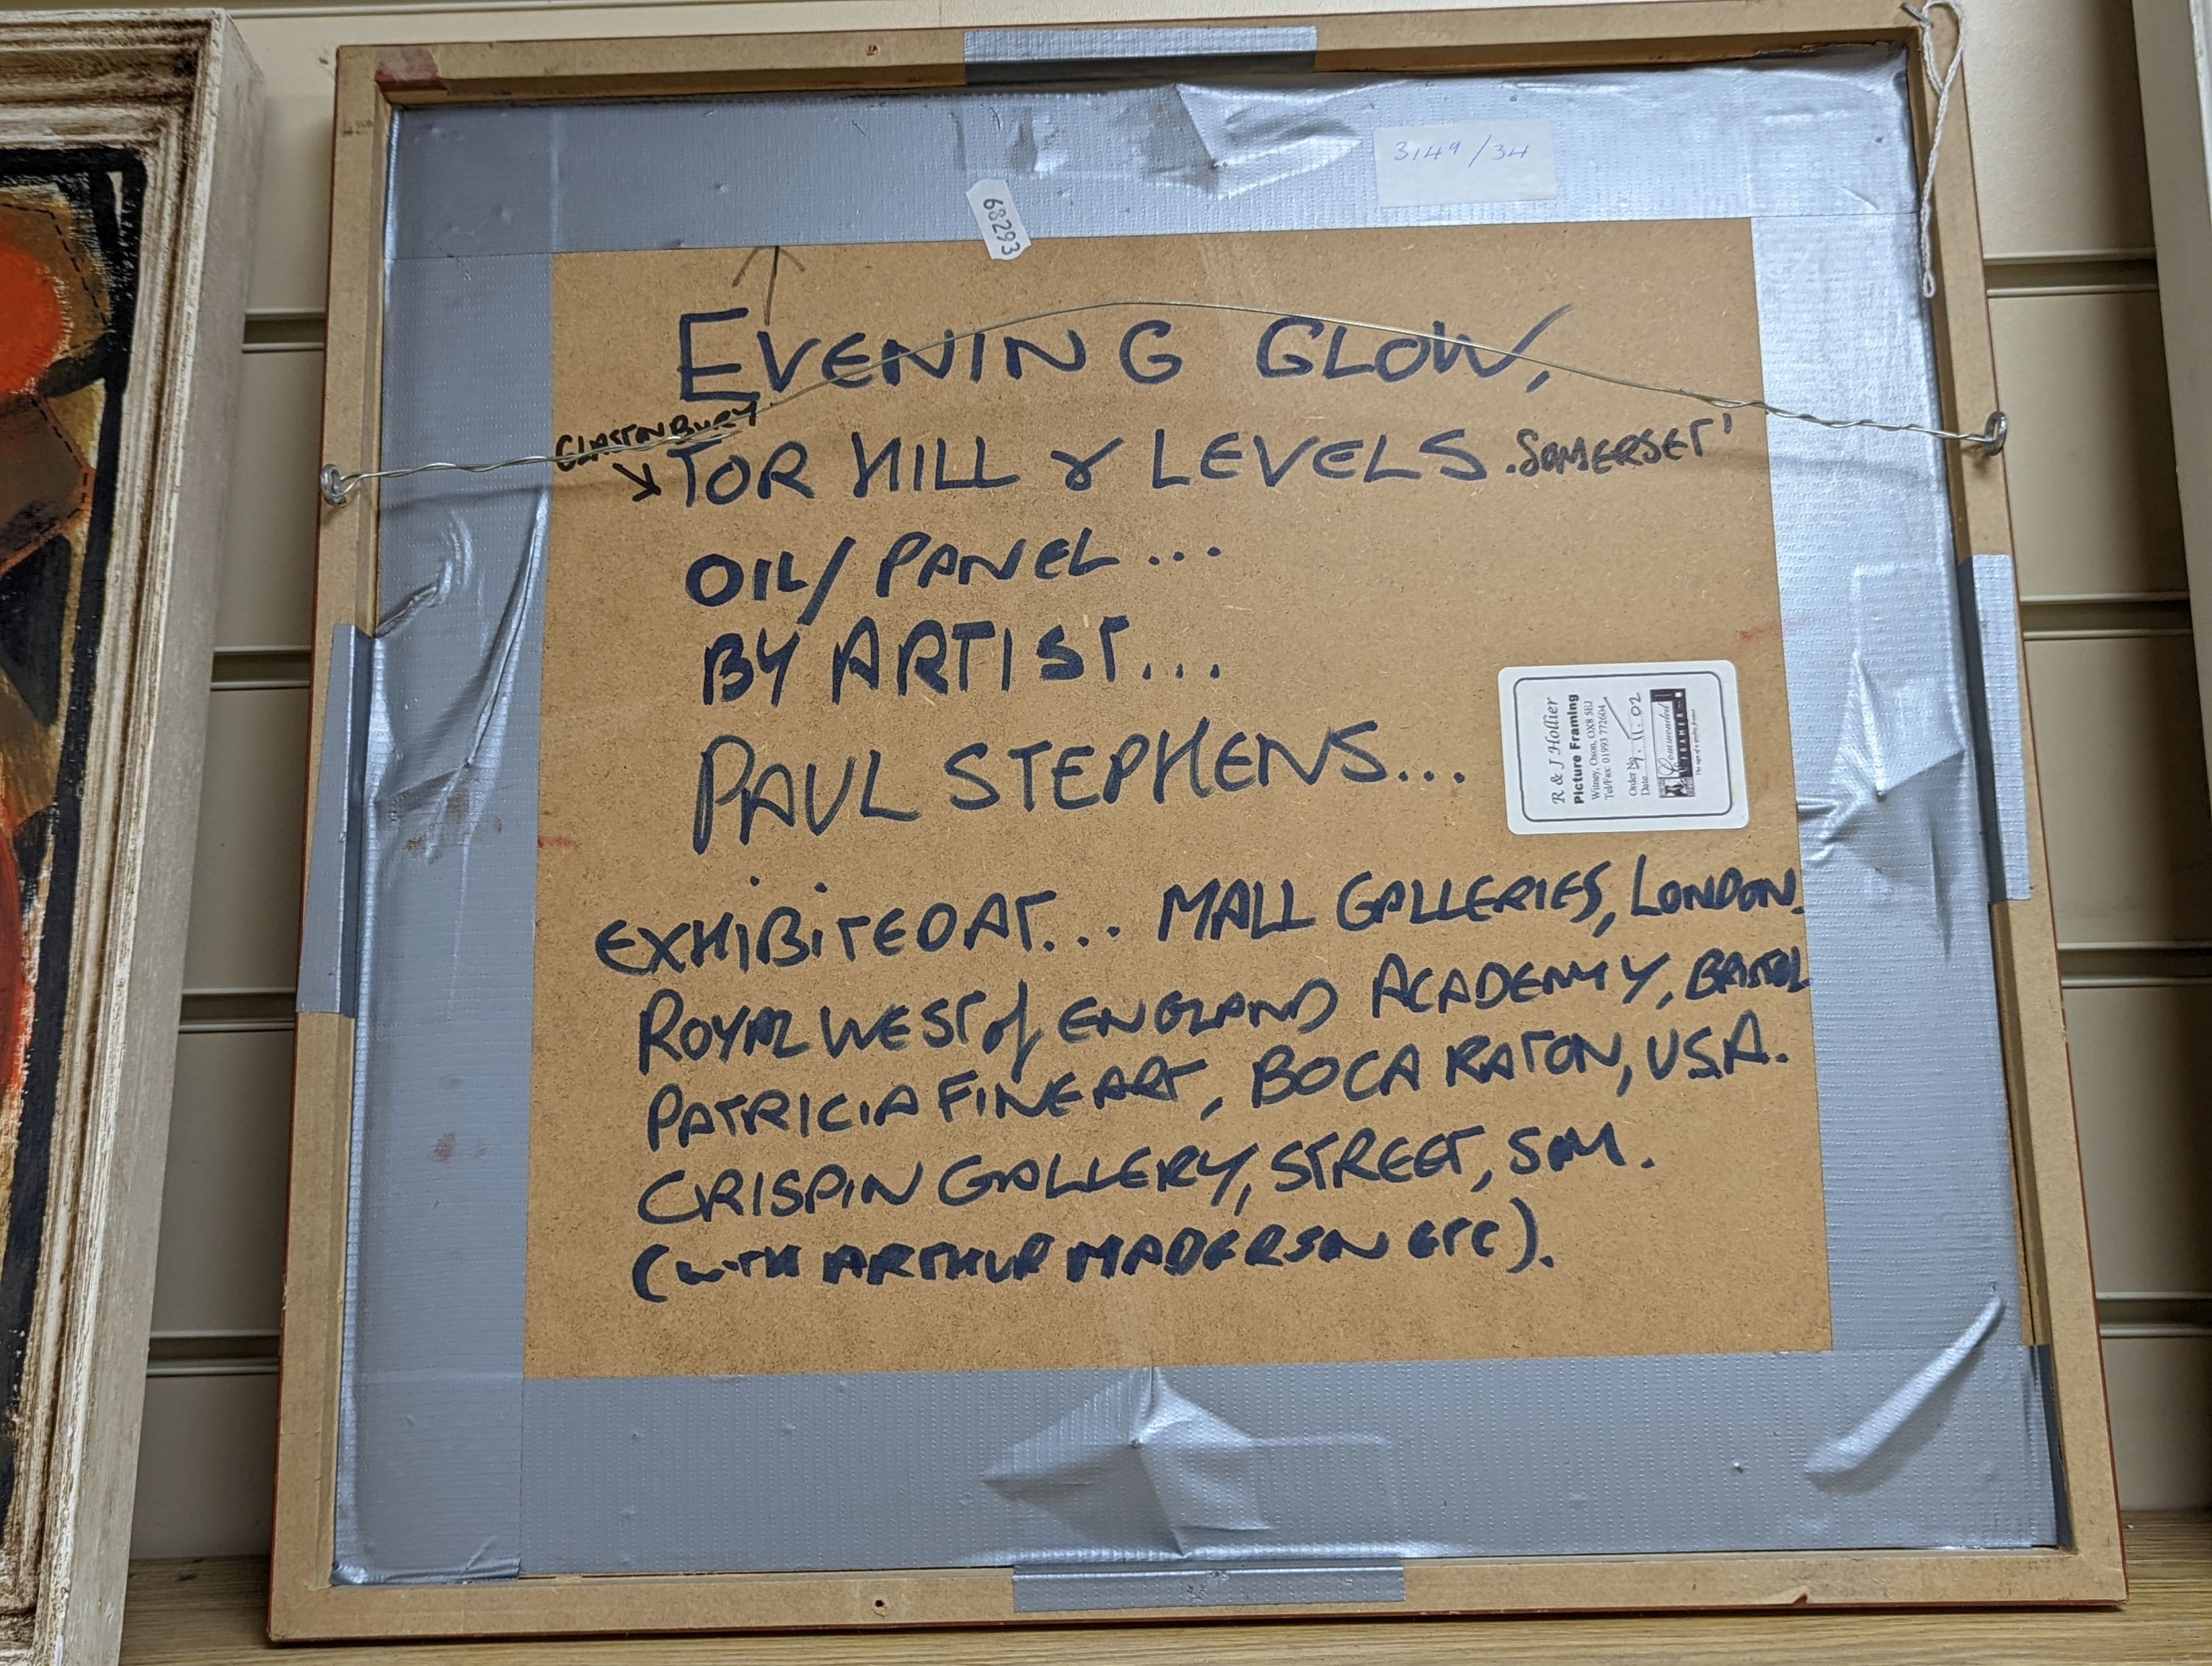 3149/34
68293
EVENING GLOW,
GLASTONBURY
TOR HILL & LEVELS. SOMERSET'
OIL/ PANEL...
BY ARTIST...
PAUL STEPHENS...
R & J Hollier
Picture Framing
Witney, Oxon, OX8 5EJ
Tel/Fax: 01993 772604
Order No.
Date 11.02
Commended
FRAMER
EXHIBITED AT... MALL GALLERIES, LONDON.
ROYAL WEST of ENGLAND ACADEMY, BRISTOL
PATRICIA FINE ART, BOCA RATON, U.S.A.
CRISPIN GALLERY, STREET, SOM.
(WITH ARTHUR MADERSON ETC).